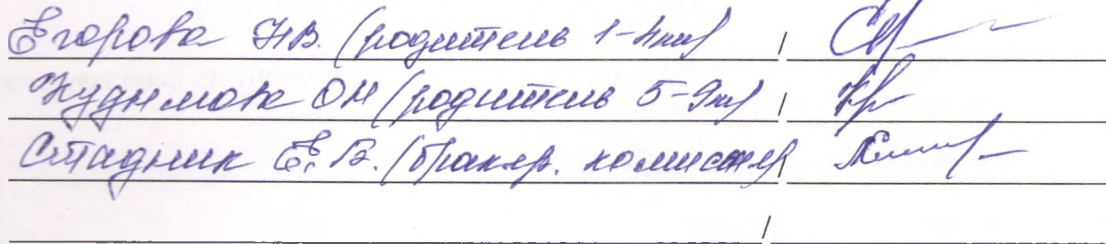 Егорова Н.В. (родитель 1-4кл) /
Кудымова ОН (родитель 5-9кл) /
Стадник Е.В. (бракер. комиссия) /
/